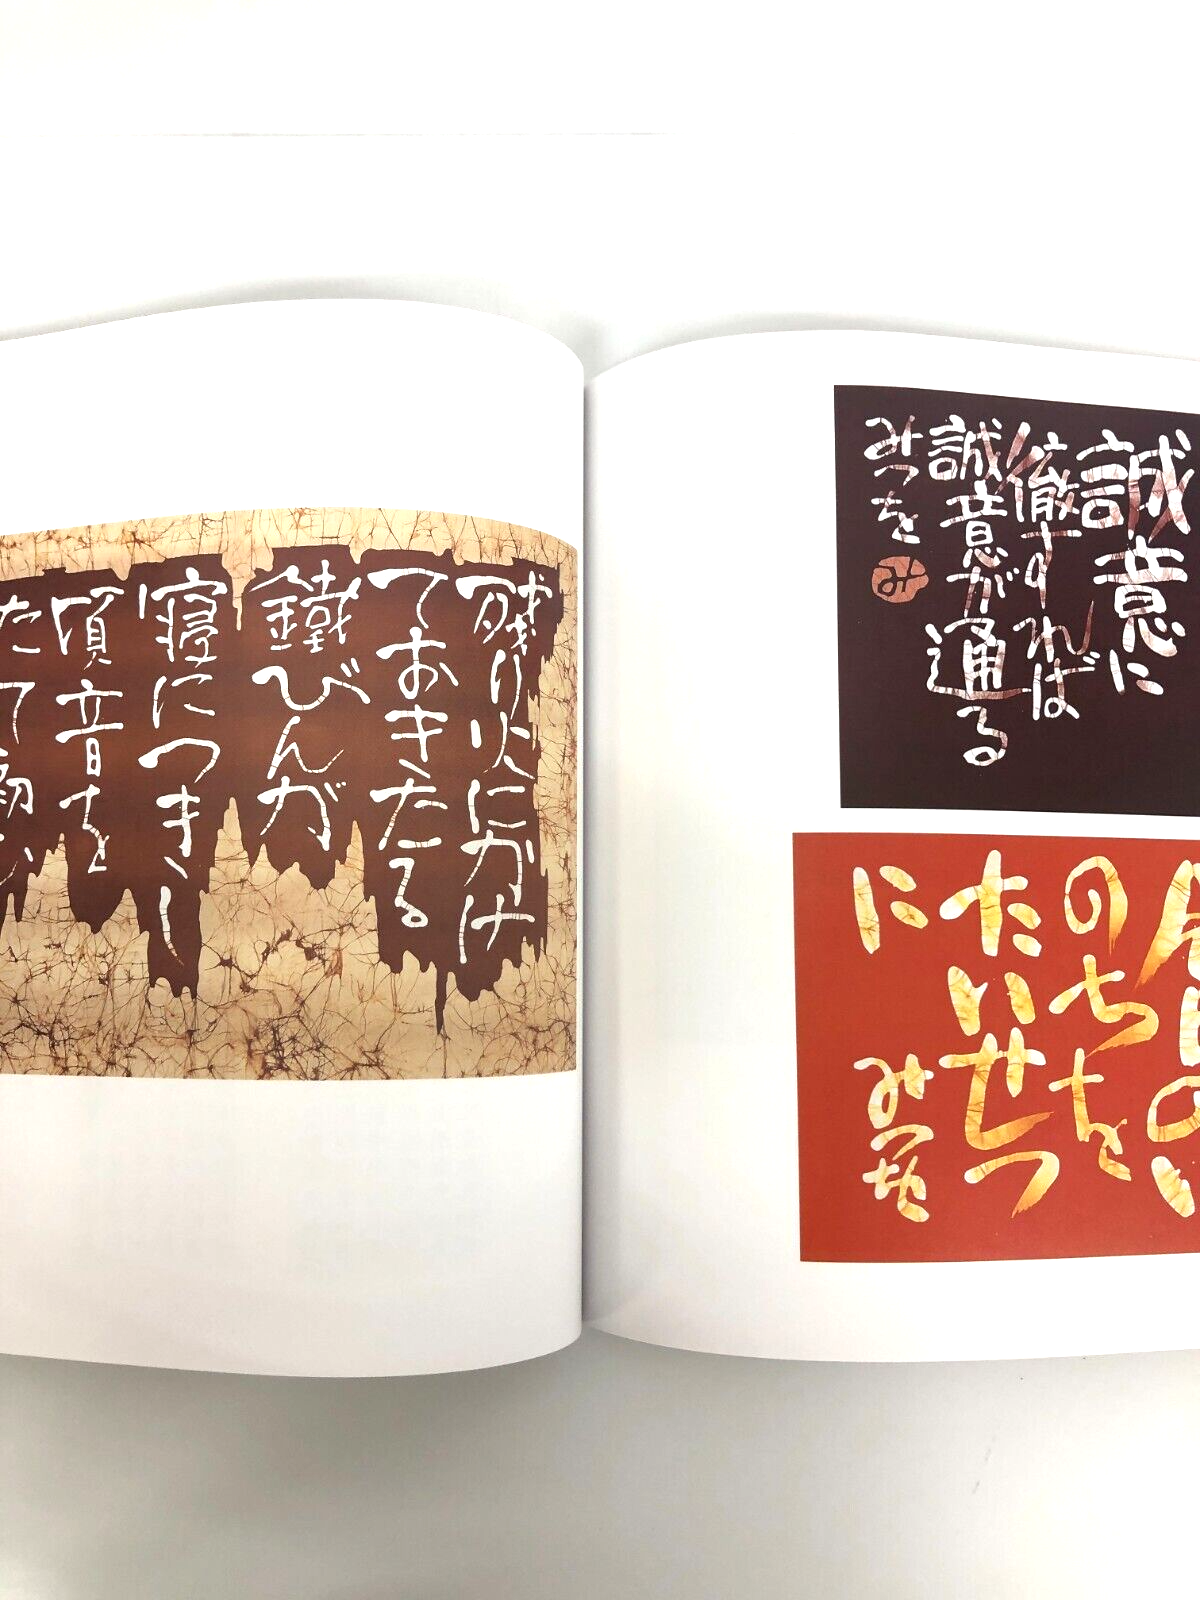 誠意に
徹すれば
誠意が通る
みつを
み
日のい
のちを
たいせつ
に
みつを
残り火にかけ
ておきたる
鐵びんが
寝につきし
頃音を
たて